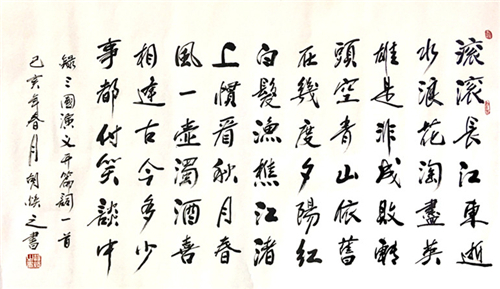 滚滚長江東逝
水浪花淘盡英
雄是非成敗轉
頭空青山依舊
在幾度夕陽紅
白髮漁樵江渚
上慣看秋月春
風一壺濁酒喜
相逢古今多少
事都付笑談中
録三國演义开篇詞一首
己亥年春月胡之書